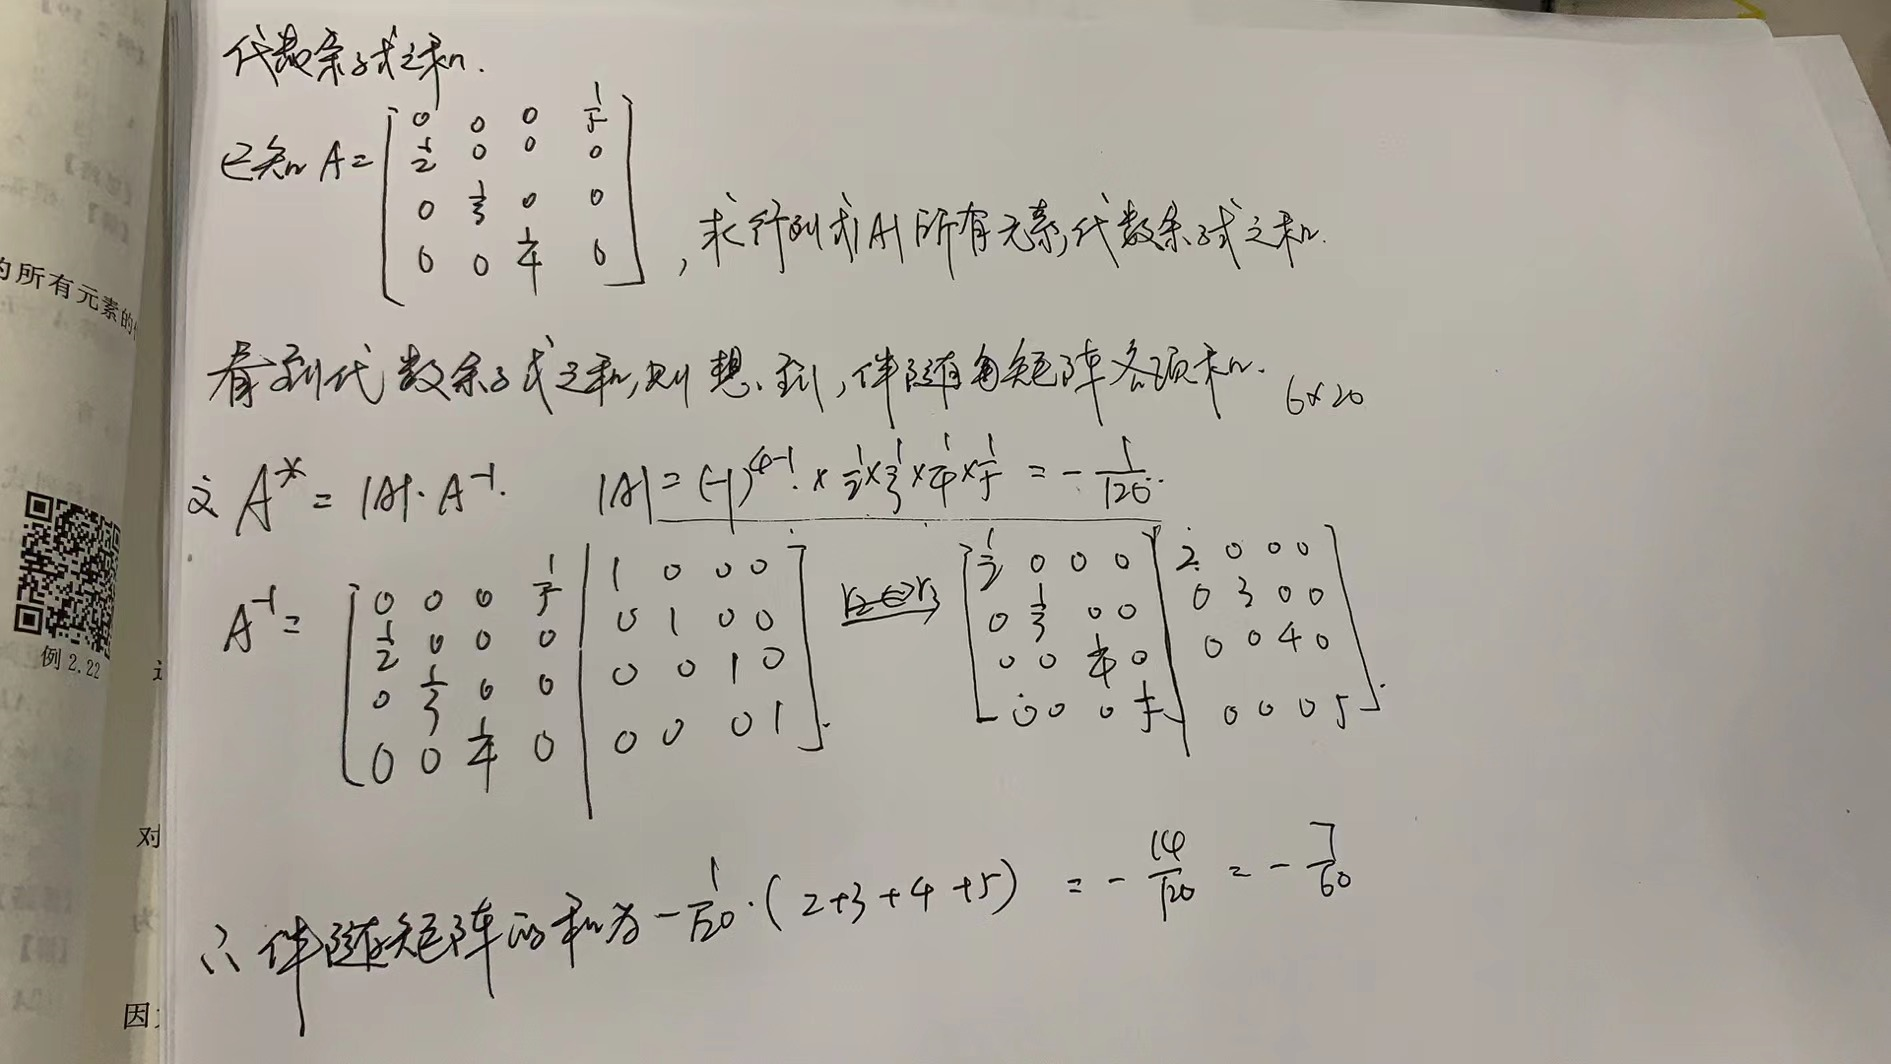 代数余子式之和.
已知 A = [ 0 0 0 1/5
1/2 0 0 0
0 1/3 0 0
0 0 1/4 0 ] , 求行列式|A|所有元素代数余子式之和.
看到代数余子式之和,则想到,伴随矩阵各项和.
6×20
A* = |A|·A⁻¹. |A| = (-1)⁴⁻¹ × 1/2 × 1/3 × 1/4 × 1/5 = - 1/120.
A⁻¹ = [ 0 0 0 1/5 | 1 0 0 0 ] r₂↔r₃ [ 1/2 0 0 0 | 2 0 0 0 ]
1/2 0 0 0 | 0 1 0 0 0 1/3 0 0 | 0 3 0 0
0 1/3 0 0 | 0 0 1 0 0 0 1/4 0 | 0 0 4 0
0 0 1/4 0 | 0 0 0 1 0 0 0 1/5 | 0 0 0 5
∴ 伴随矩阵的和为 - 1/120 · ( 2+3+4+5 ) = - 14/120 = - 7/60
的所有元素的
例 2.22
对
为
因